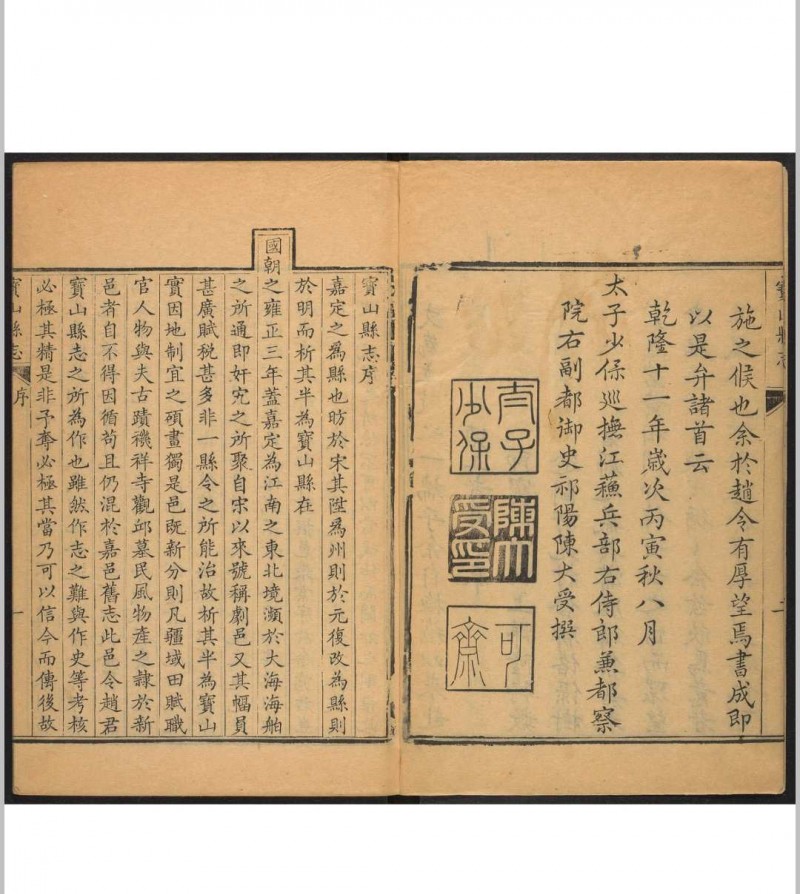 寶山縣志
施之候也余於趙令有厚望焉書成即
以是弁諸首云
乾隆十一年歲次丙寅秋八月
太子少保巡撫江蘓兵部右侍郎兼都察
院右副都御史祁陽陳大受撰
太子
少保
陳大
受印
可
齋
寶山縣志序
嘉定之為縣也昉於宋其陞為州則於元復改為縣則
於明而析其半為寶山縣在
國朝之雍正三年蓋嘉定為江南之東北境瀕於大海海舶
之所通即奸宄之所聚自宋以來號稱劇邑又其幅員
甚廣賦稅甚多非一縣令之所能治故析其半為寶山
實因地制宜之碩畫獨是邑既新分則凡疆域田賦職
官人物與夫古蹟禨祥寺觀邱墓民風物產之隸於新
邑者自不得因循苟且仍混於嘉邑舊志此邑令趙君
寶山縣志之所為作也雖然作志之難與作史等考核
必極其精是非予奪必極其當乃可以信今而傳後故
寶山縣志
序
一